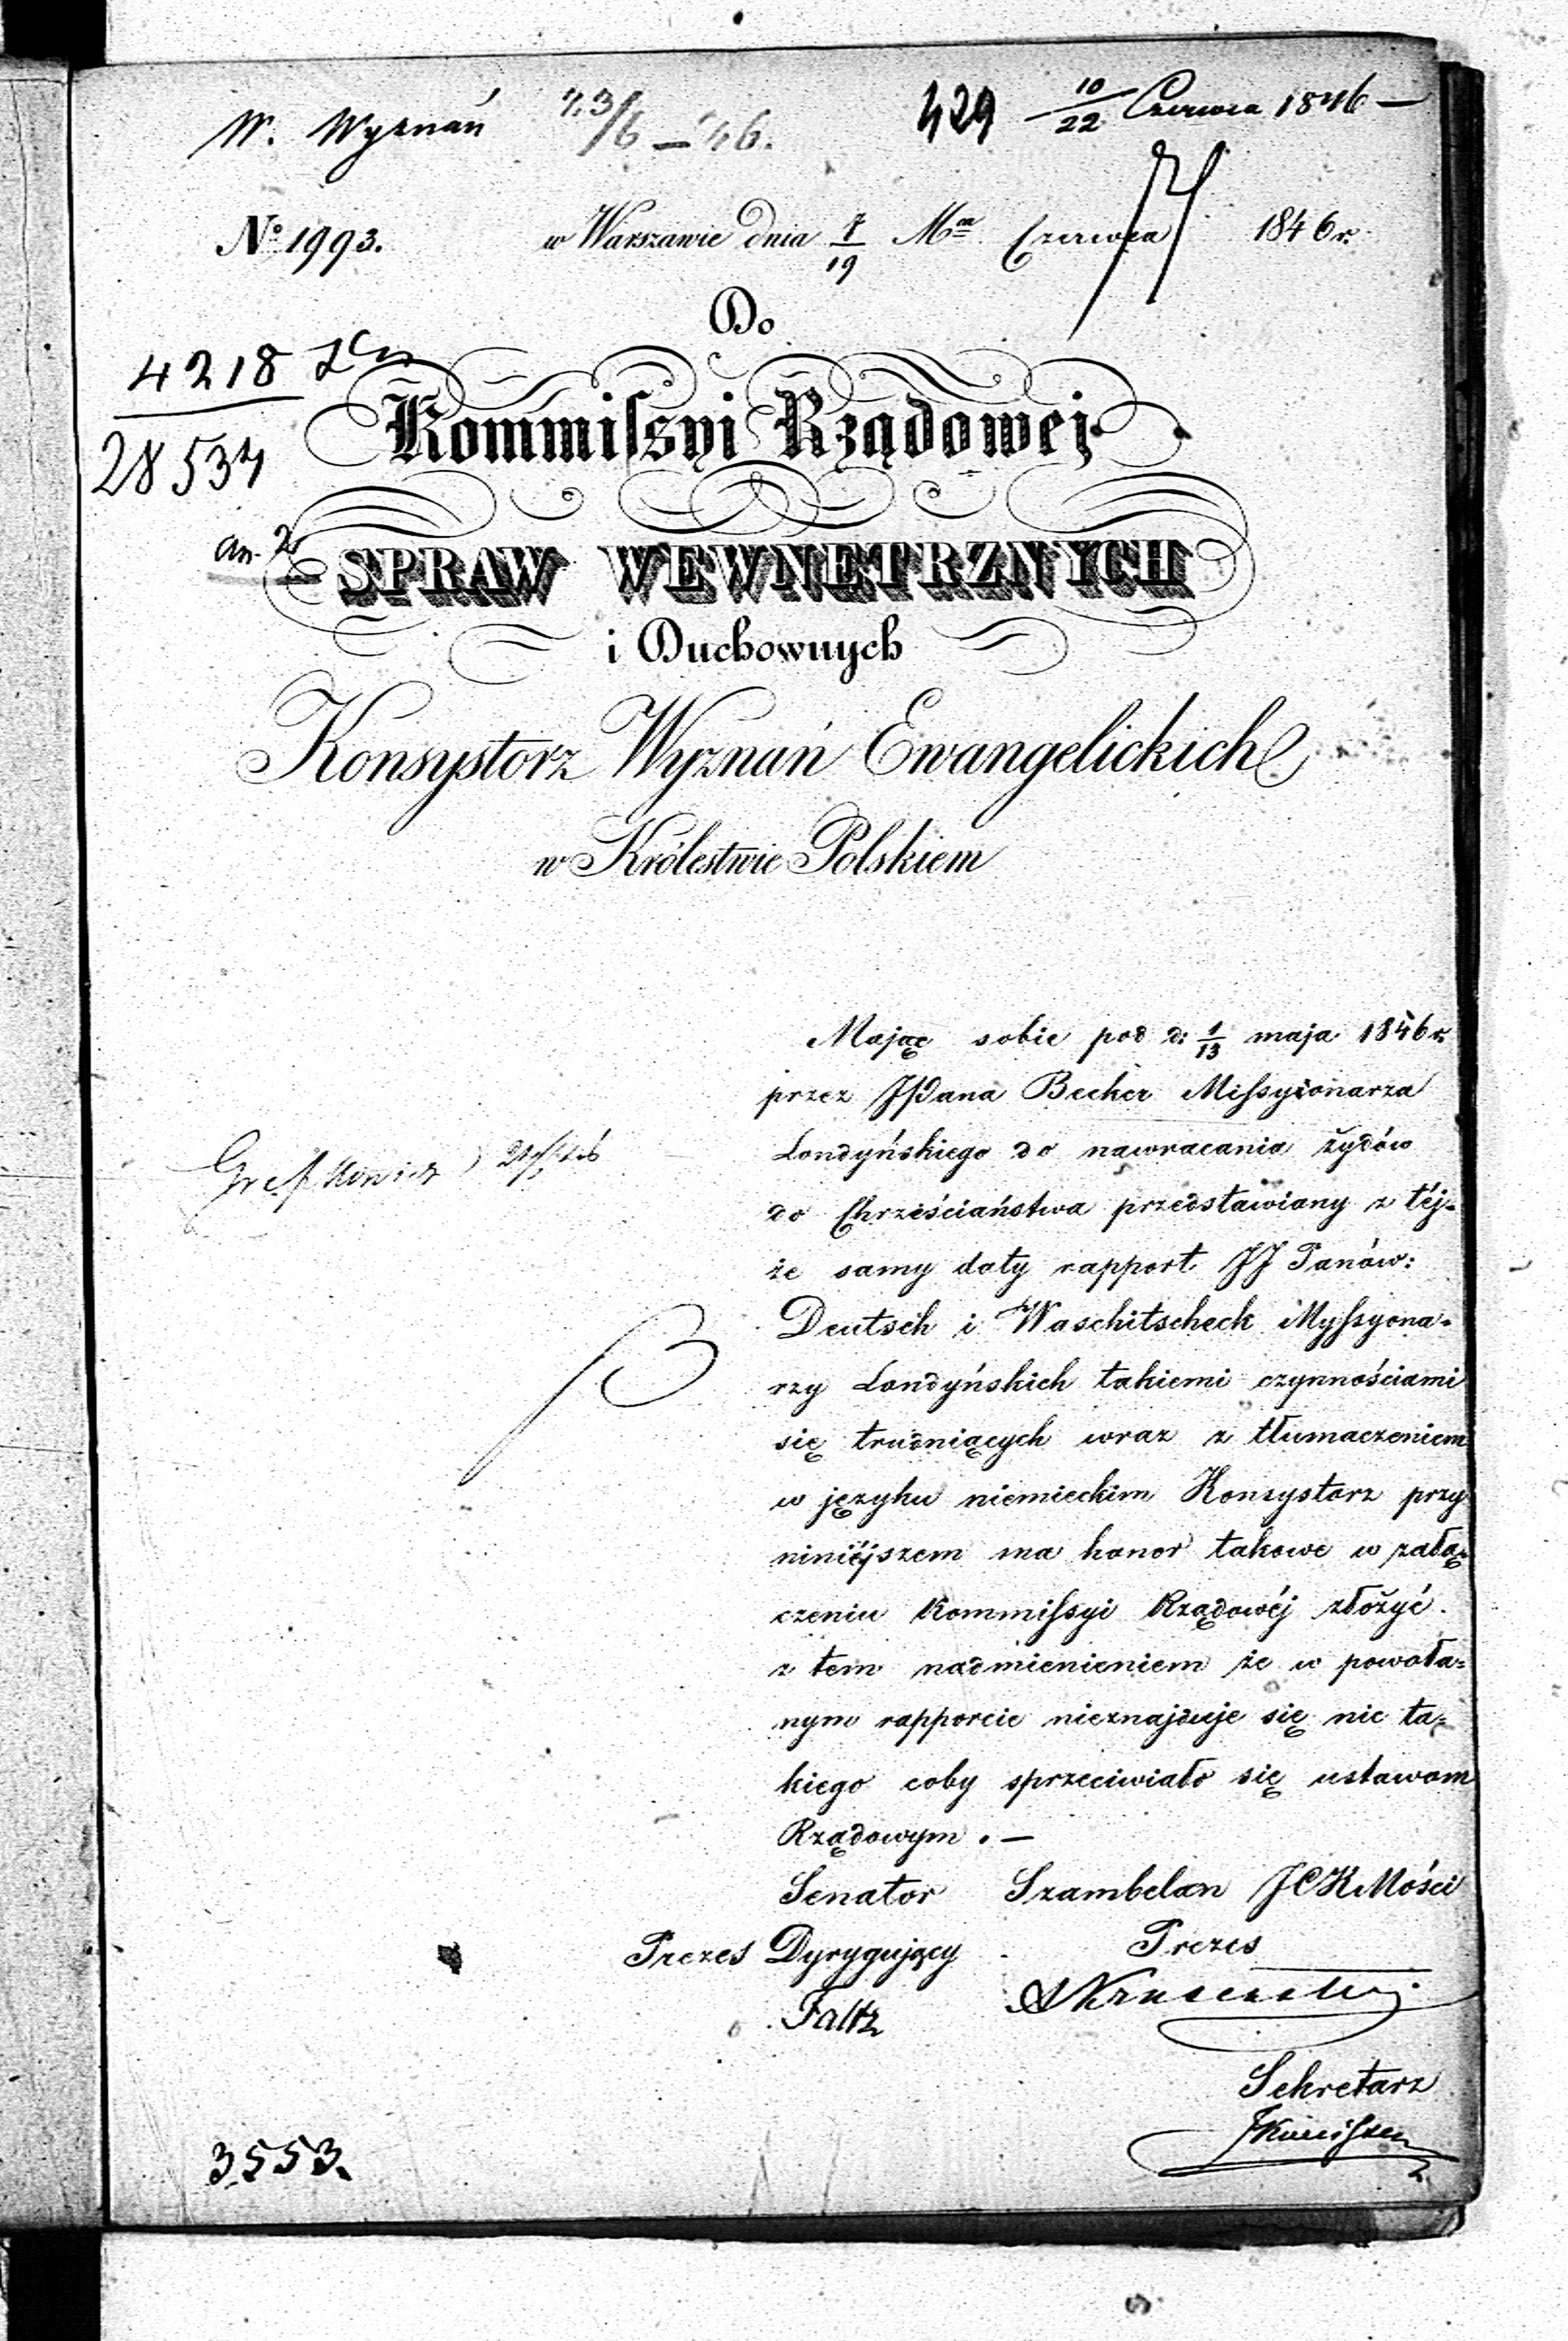 W. Wyznań 23/6 – 46. 429 10/22 Czerwca 1846 —
No 1993. w Warszawie dnia 7/19 Mca Czerwca 1846 r.
Do
4218
28534
Kommissyi Rządowej
an. 2
SPRAW WEWNETRZNYCH
i Duchownych
Konsystorz Wyznań Ewangelickich
w Królestwie Polskiem
Mając sobie pod d: 1/13 maja 1846 r.
przez JPana Becker Missyionarza
Londyńskiego do nawracania żydów
do Chrześciaństwa przedstawiany z téj-
że samy daty rapport JJ Panów:
Deutsch i Waschitscheck Myssyona-
rzy Londyńskich takiemi czynnościami
się trudniących wraz z tłumaczeniem
w języku niemieckim Konsystorz przy
niniéjszem ma honor takowe w załą-
czeniu Kommissyi Rządowéj złożyć.
z tem nadmienieniem że w powoła=
nym rapporcie nieznajduje się nic ta=
kiego coby sprzeciwiało się ustawom
Rządowym. —
Senator Szambelan JCKMości
Prezes Dyrygujący Prezes
Faltz
Sekretarz
3553.